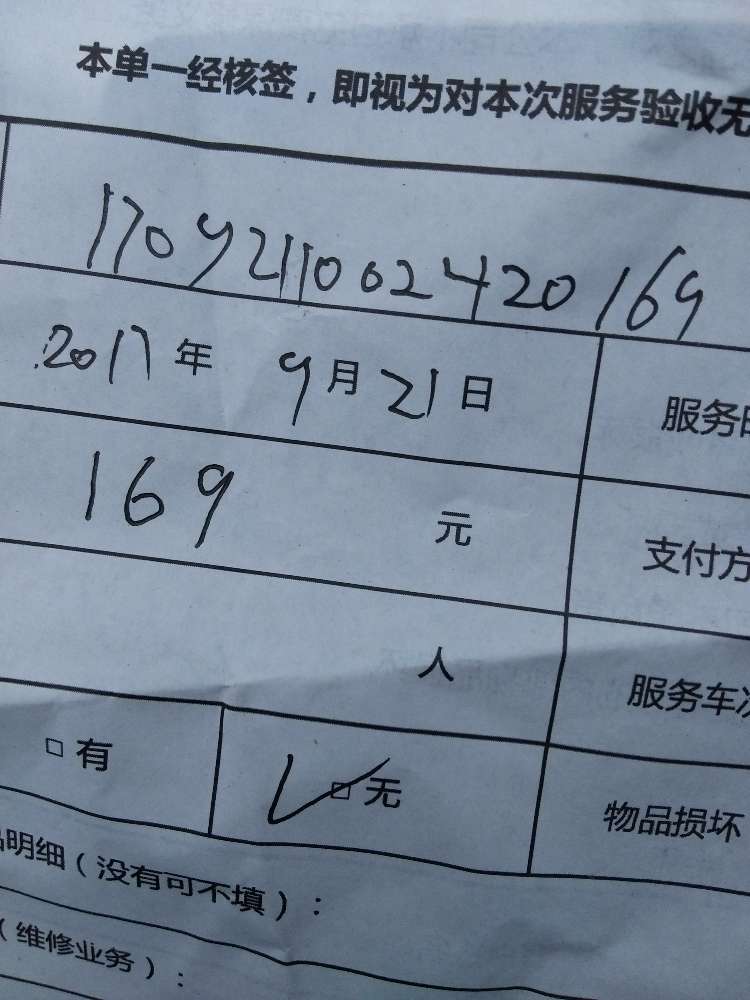 本单一经核签，即视为对本次服务验收无
17092111002420169
2017年 9月21日 服务时
169 元 支付方
人 服务车次
□有 ☑无 物品损坏
品明细（没有可不填）：
（维修业务）：